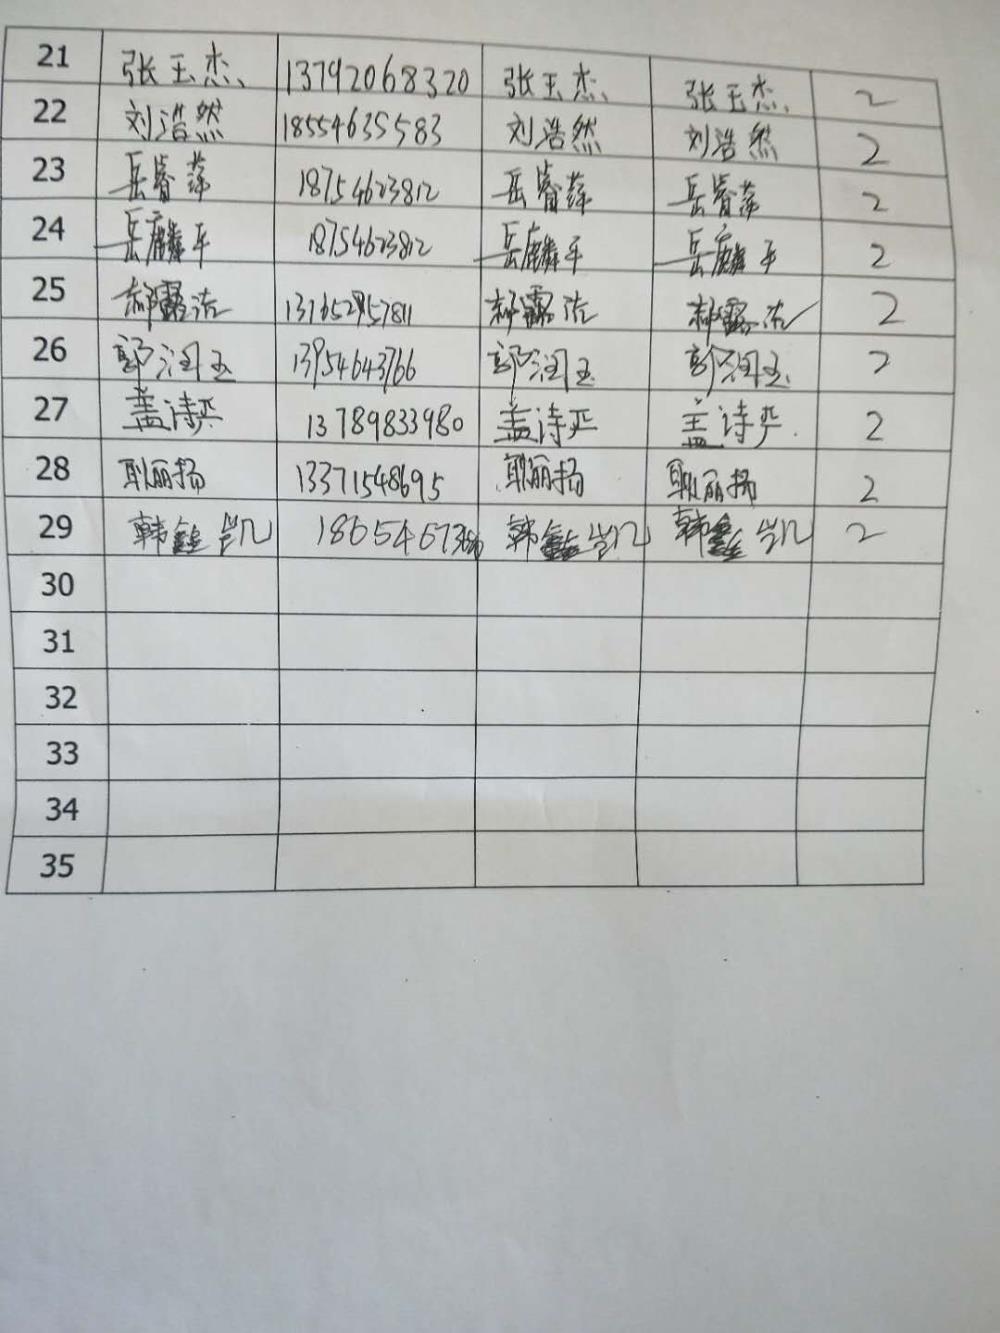 21 张玉杰 13792068320 张玉杰 张玉杰 2
22 刘浩然 18554635583 刘浩然 刘浩然 2
23 岳睿萍 18754623812 岳睿萍 岳睿萍 2
24 岳麟平 18754623812 岳麟平 岳麟平 2
25 郝露洁 郝露洁 郝露洁 2
26 郭润玉 13954643766 郭润玉 郭润玉 2
27 盖诗严 13789833980 盖诗严 盖诗严 2
28 耿丽扬 13371548695 耿丽扬 耿丽扬 2
29 韩鑫凯 韩鑫凯 韩鑫凯 2
30
31
32
33
34
35